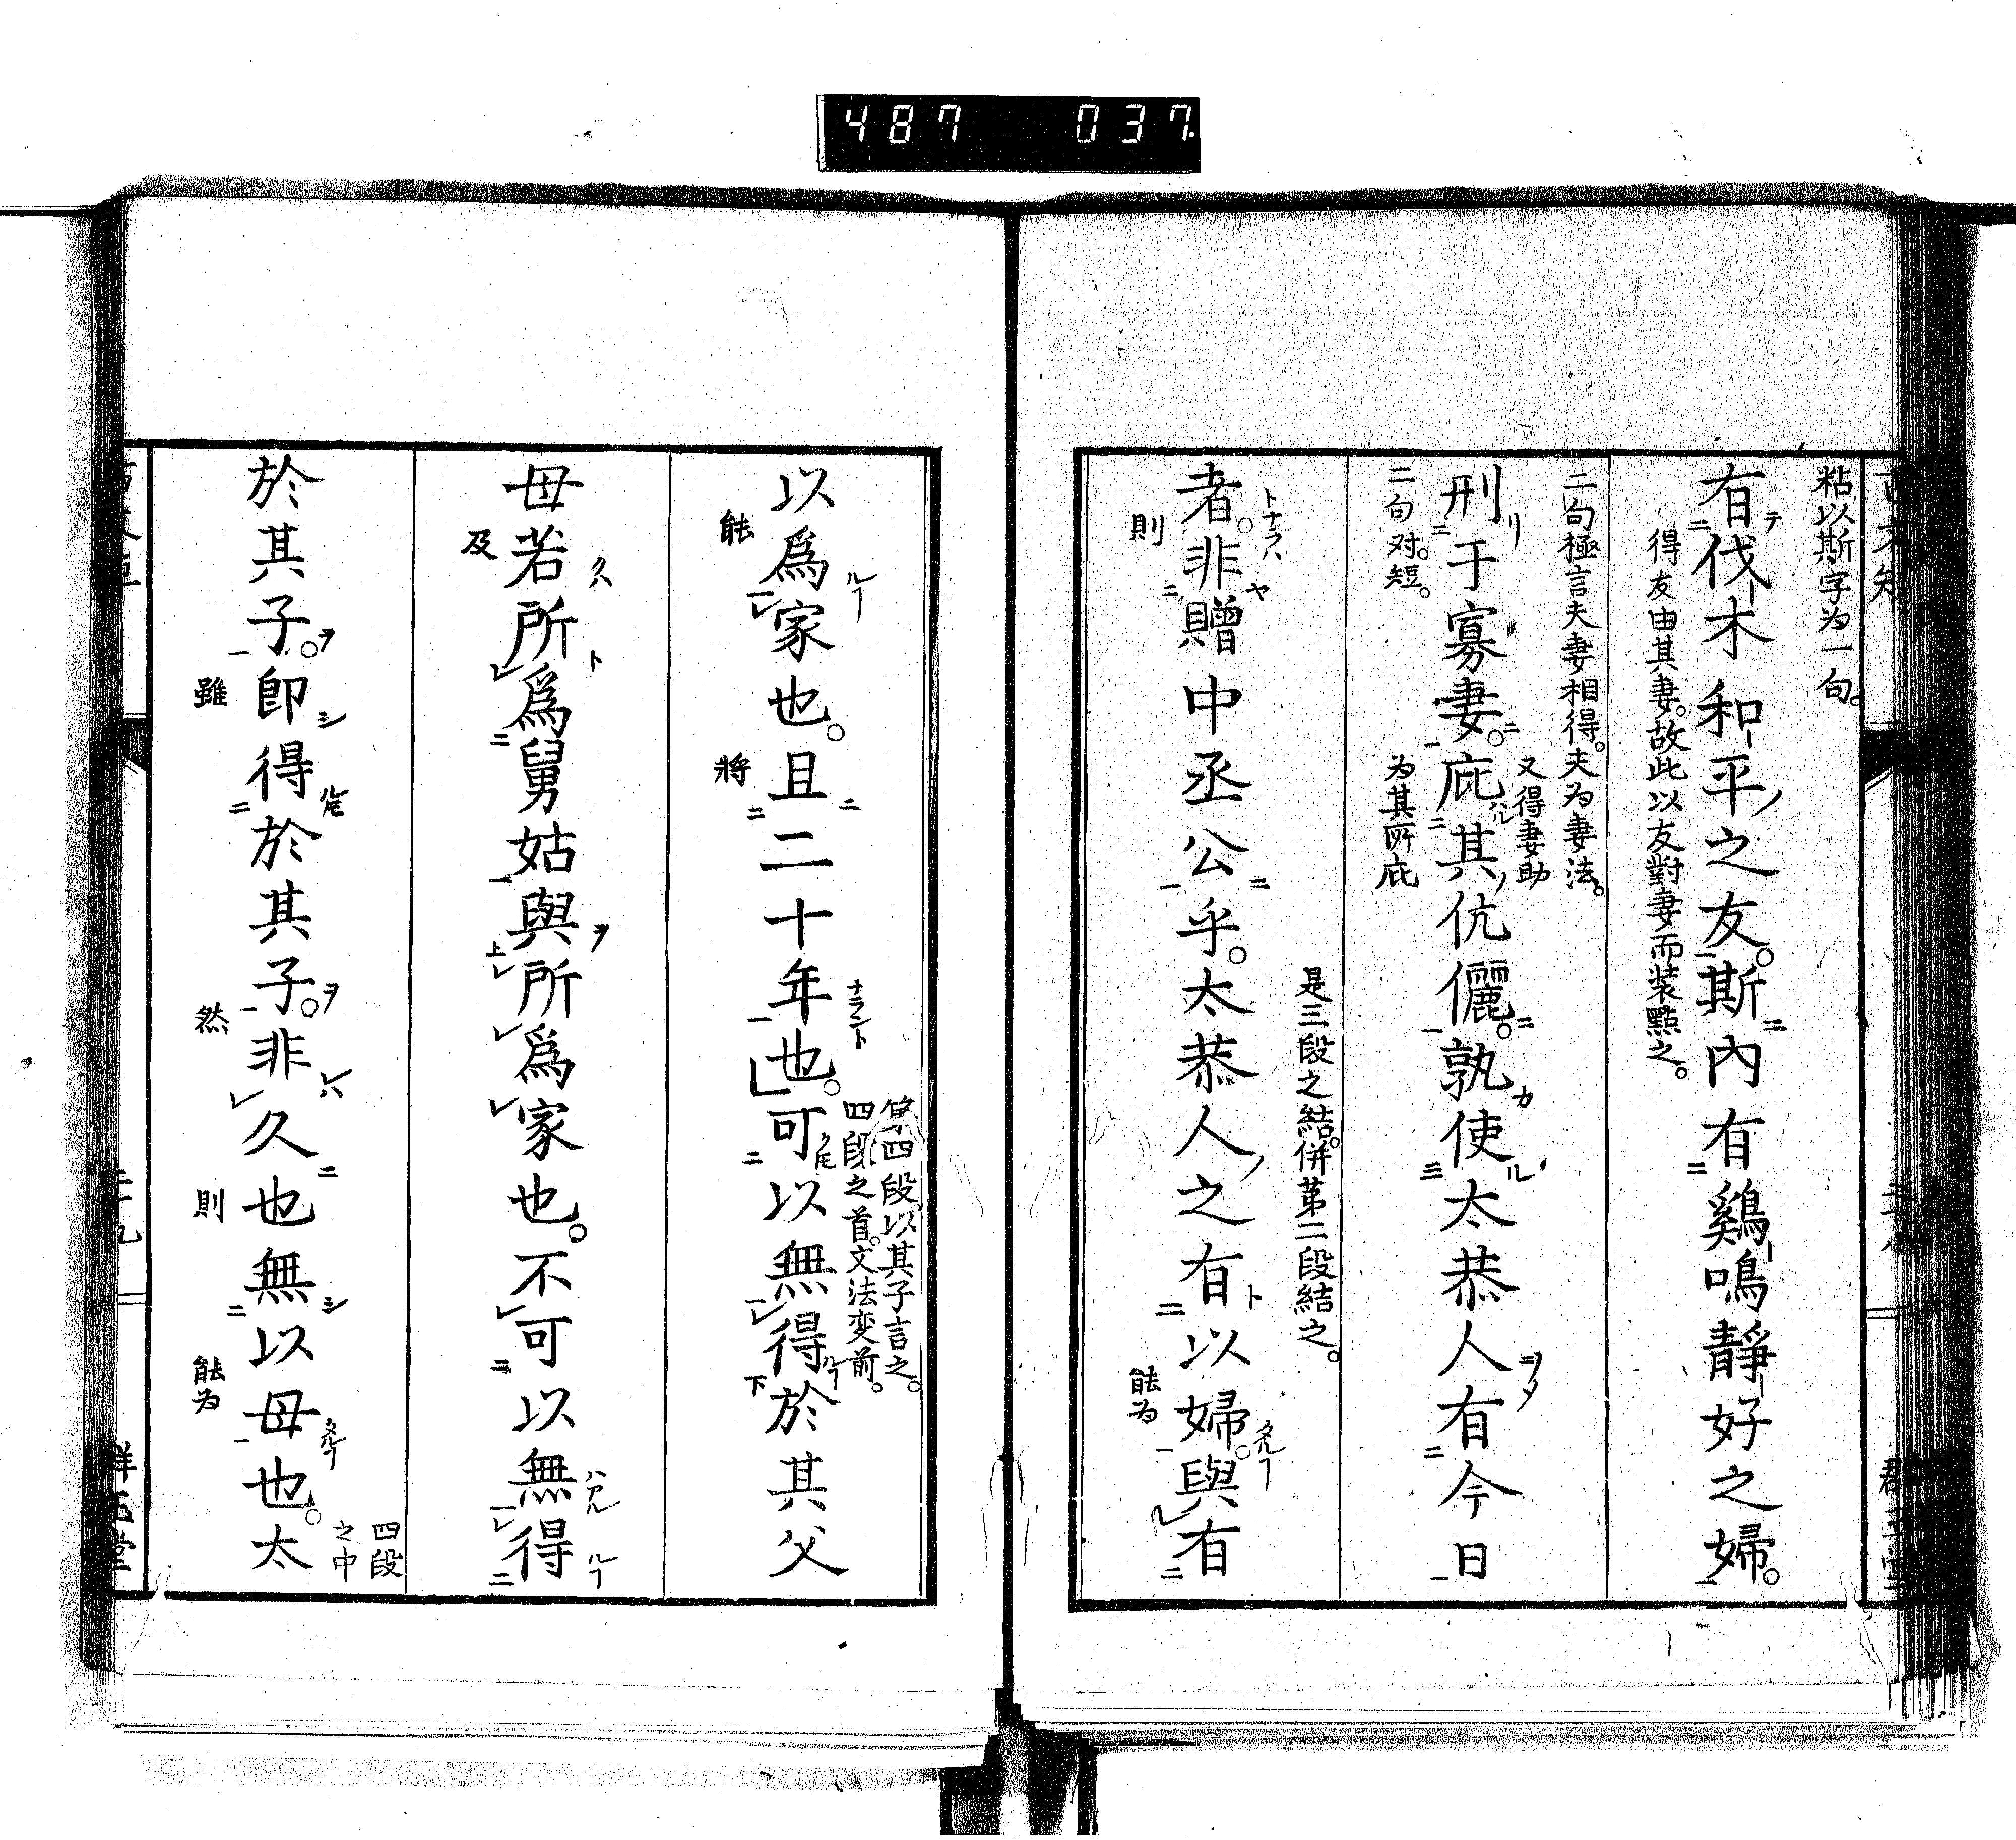 487 037
粘以斯字为一句。
有伐木和平之友。斯內有鷄鳴靜好之婦。
得友由其妻。故此以友對妻而装點之。
二句極言夫妻相得。夫为妻法。
又得妻助
刑于寡妻。庇其伉儷。孰使太恭人有今日
二句对。短。
为其所庇
是三段之結。併苐二段結之。
者。非贈中丞公乎。太恭人之有以婦。與有
則
能为
第四段以其子言之。
四段之首。文法变前。
以爲家也。且二十年也。可以無得於其父
能
將
母若所爲舅姑與所爲家也。不可以無得
及
四段
之中
於其子。卽得於其子。非久也無以母也。太
雖
然
則
能为